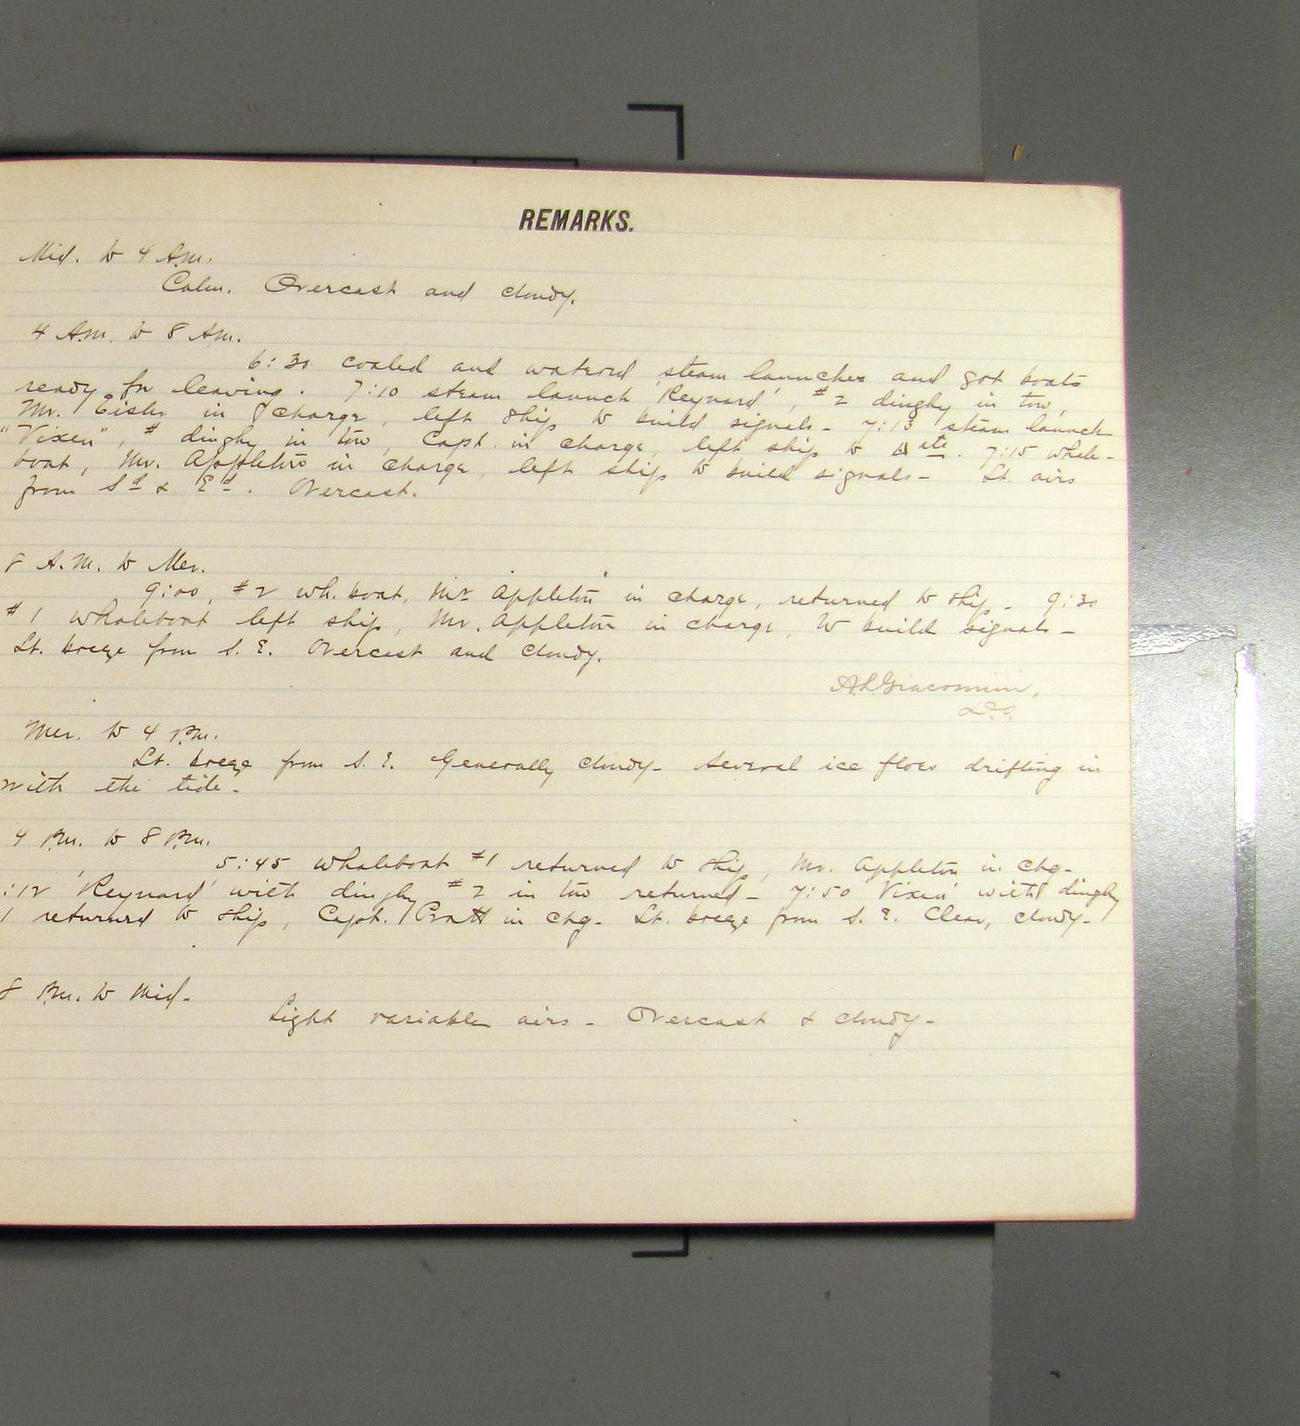 REMARKS.
Mid. to 4 A.m.
Calm. Overcast and cloudy.
4 A.m. to 8 Am.
6:30 coaled and watered steam launches and got boats
ready for leaving. 7:10 steam launch 'Reynard', #2 dinghy in tow,
Mr. in charge, left ship to build signals - 7:13 steam launch
"Vixen", # dinghy in tow, Capt. in charge, left ship to Δate. 7:15 whale-
boat, Mr. Appleton in charge, left ship to build signals - Lt. airs
from Sd & Ed. Overcast.
8 A.M. to Mer.
9:00, #2 wh. boat, Mr Appleton in charge, returned to ship - 9:30
#1 whaleboat left ship, Mr. Appleton in charge, to build signals -
Lt. breeze from S. E. Overcast and cloudy.
A.L. Giacomini,
Mer. to 4 P.m.
Lt. breeze from S. E. Generally cloudy - Several ice floes drifting in
with the tide -
4 P.m. to 8 P.m.
5:45 whaleboat #1 returned to ship, Mr. Appleton in chg -
:12 'Reynard' with dinghy #2 in tow returned - 7:50 'Vixen' with dinghy
1 returned to ship, Capt. Pratt in chg - Lt. breeze from S. E. Clear, cloudy -
8 P.m. to Mid -
Light variable airs - Overcast & cloudy -